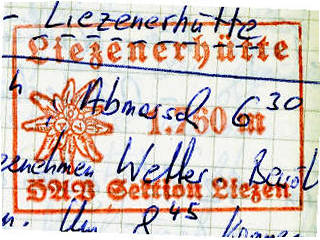 - Liezenerhütte
Liezenerhütte
h, Abmarsch 6 30
1.760 m
Wetter
ÖAV Sektion Liezen
Um 8 45